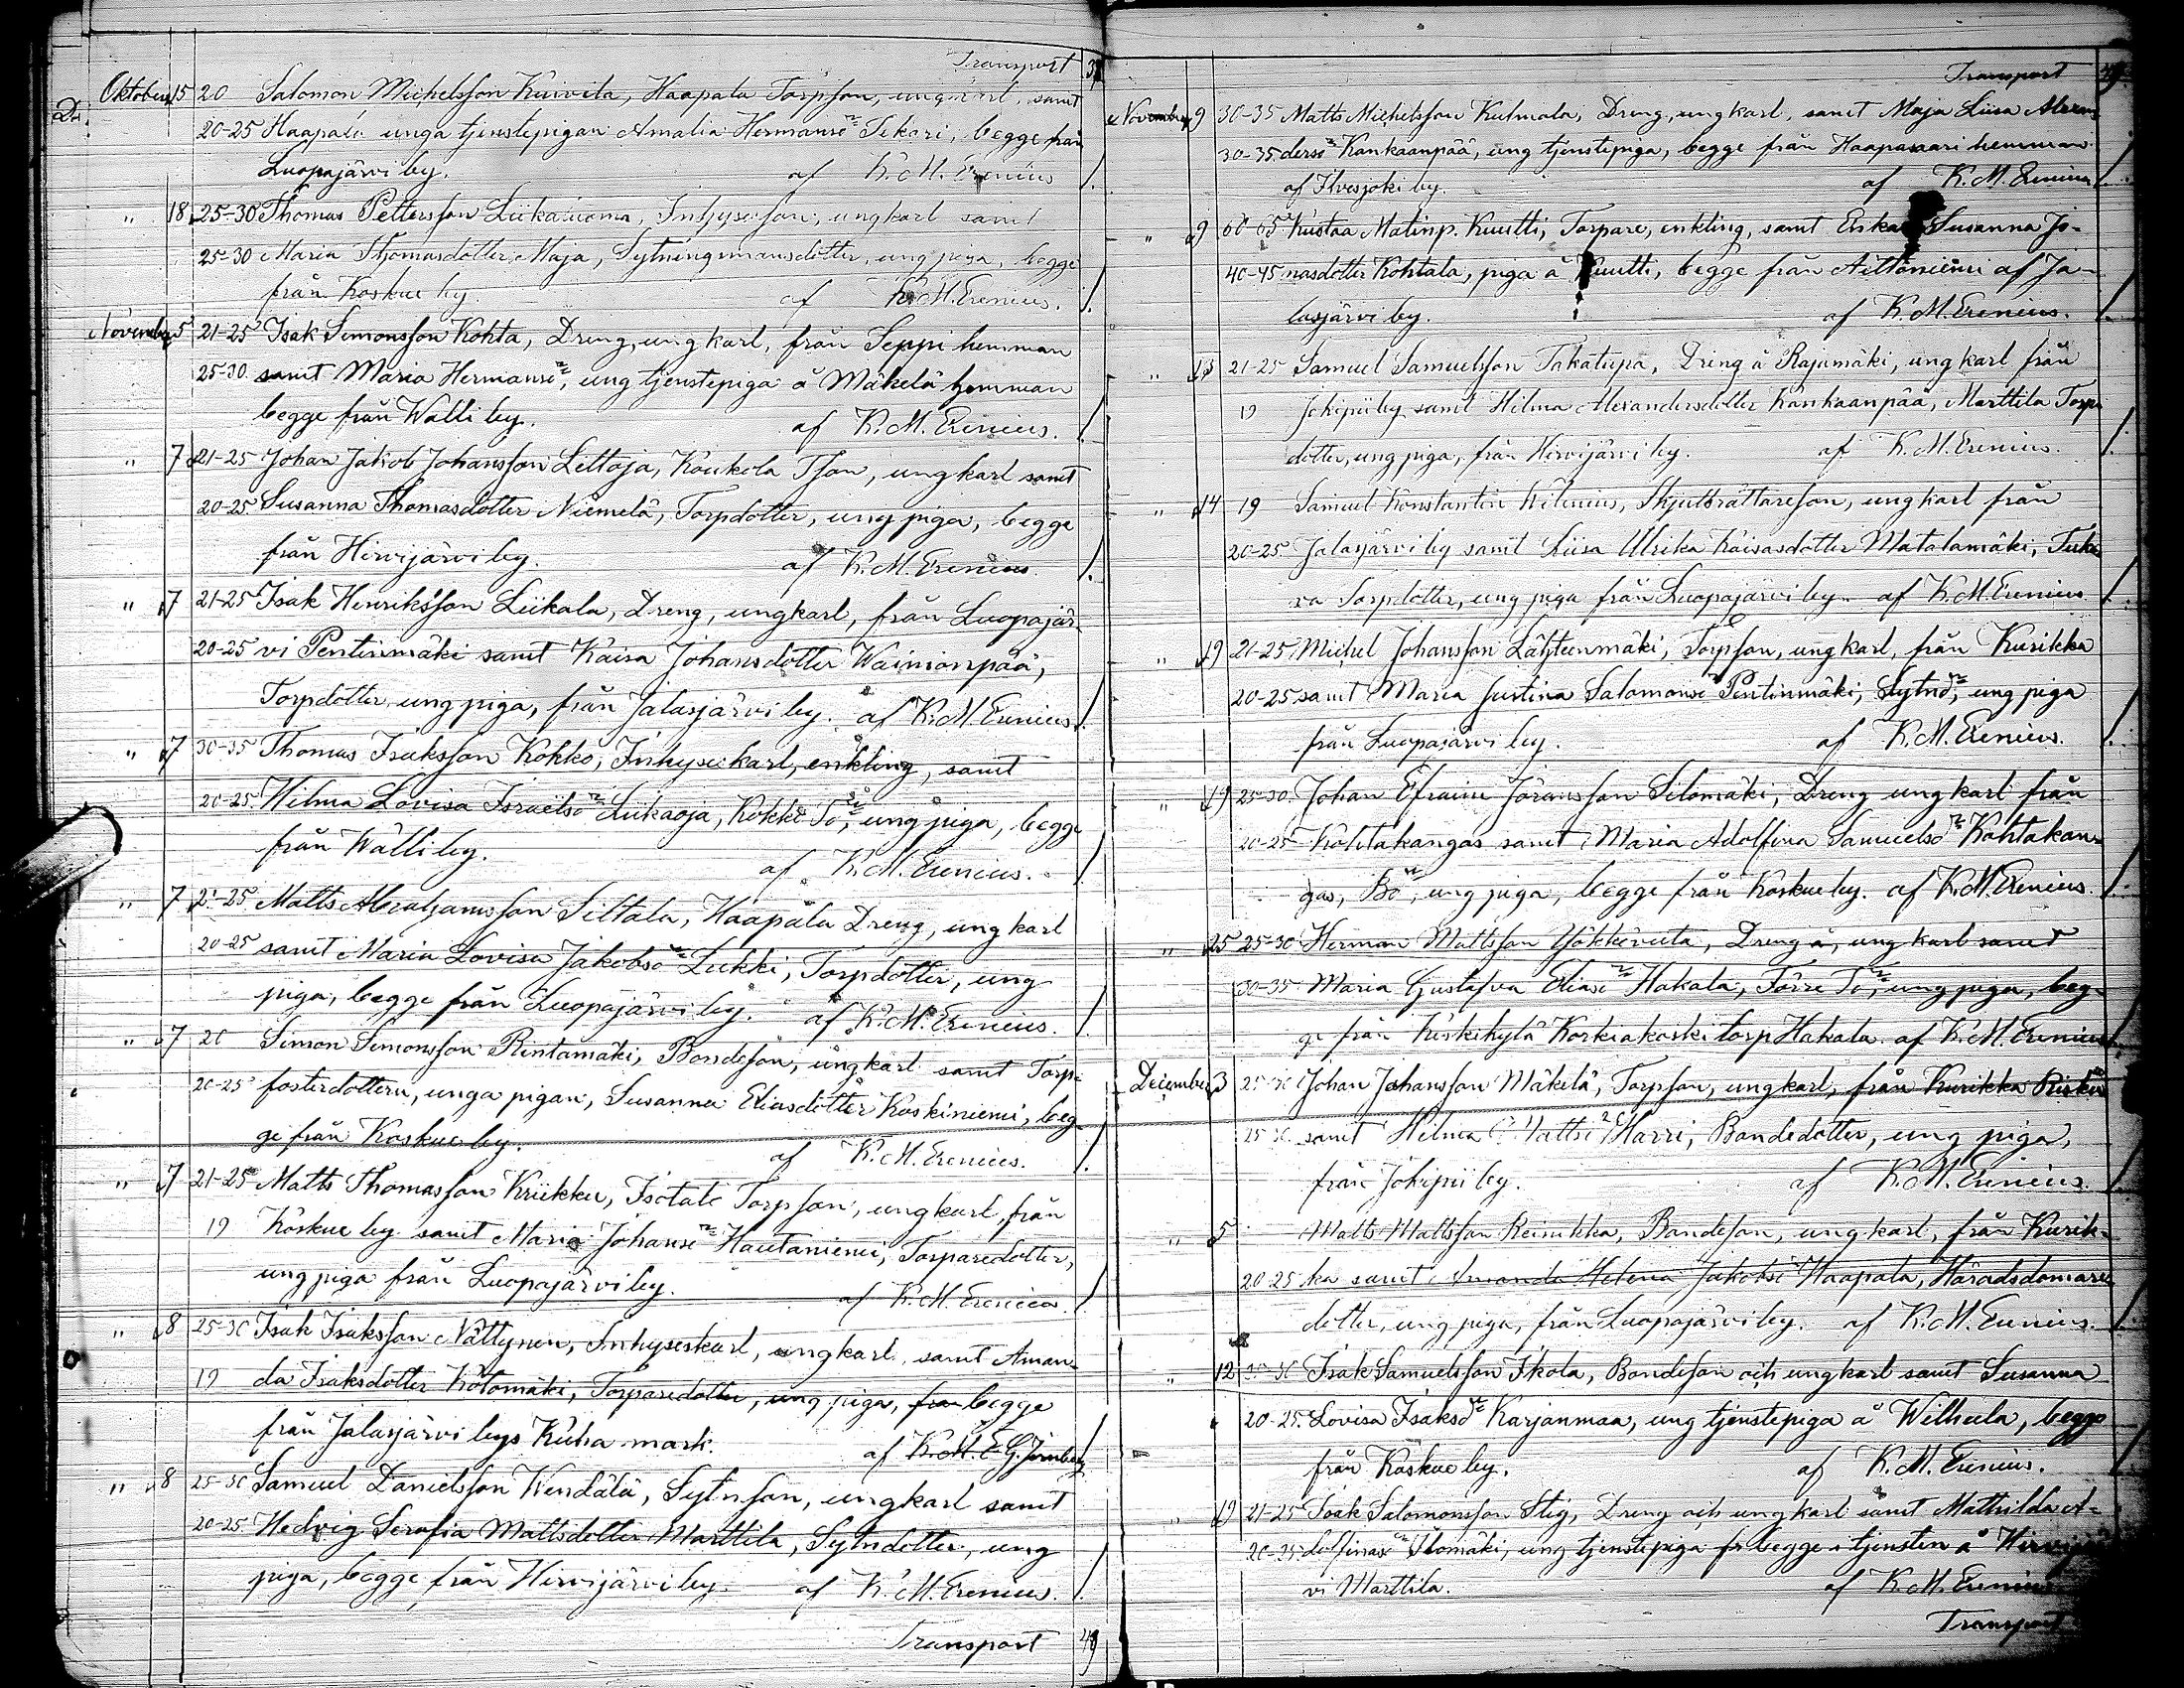 Transport 37
Oktober 15 20 Salomon Michelsson Kuivila, Haapala Torpson, ungkarl, samt
20-25 Haapala unga tjenstepigan Amalia Hermansdr Sikari, begge från
Luopajärvi by. af K. M. Erenius 1.
" 18 25-30 Thomas Pettersson Liikaluoma, Inhyseson, ungkarl samt
25-30 Maria Thomasdotter Maja, Sytningsmansdotter, ung piga, begge
från Koskue by. af K. M. Erenius. 1.
November 5 21-25 Isak Simonsson Kohta, Dreng, ungkarl, från Seppi hemman
25-30. samt Maria Hermansdr, ung tjenstepiga å Mäkelä hemman
begge från Walli by. af K. M. Erenius. 1.
" 7 21-25 Johan Jakob Johansson Liltoja, Koukola Tson, ungkarl samt
20-25 Susanna Thomasdotter Niemelä, Torpdotter, ung piga, begge
från Hirvijärvi by. af K. M. Erenius. 1.
" 7 21-25 Isak Henriksson Liikala, Dreng, ungkarl, från Luopajär-
20-25 vi Pentinmäki samt Kaisa Johansdotter Wainionpää,
Torpdotter, ung piga, från Jalasjärvi by. af K. M. Erenius 1.
" 7 30-35 Thomas Isaksson Kokko, Inhysekarl, enkling, samt
20-25 Hilma Lovisa Israelsdr Liikaoja, Kokko Tdr, ung piga, begge
från Walli by. af K. M. Erenius. 1
" 7 21-25 Matts Abrahamsson Siltala, Haapala Dreng, ungkarl
20-25 samt Maria Lovisa Jakobsdr Lukki, Torpdotter, ung
piga, begge från Luopajärvi by. af K. M. Erenius. 1.
" 7 20 Simon Simonsson Rintamäki, Bondeson, ungkarl samt Torp-
20-25 fosterdottern, unga pigan, Susanna Eliasdotter Koskiniemi, beg-
ge från Koskue by. af K. M. Erenius. 1.
" 7 21-25 Matts Thomasson Kriikku, Isotalo Torpson, ungkarl, från
19 Koskue by samt Maria Johansdr Hautaniemi, Torparedotter,
ung piga från Luopajärvi by. af K. M. Erenius. 1.
" 8 25-30 Isak Isaksson Nättynen, Inhyseskarl, ungkarl samt Aman-
19 da Isaksdotter Kotomäki, Torparedotter, ung piga, från begge
från Jalasjärvi bys Kiiha mark. af K. M. E G. Jernberg 1
" 8 25-30 Samuel Danielsson Wendälä, Sytnson, ungkarl samt
20-25 Hedvig Serafia Mattsdotter Marttila, Sytndotter, ung
piga, begge från Hirvijärvi by. af K. M. Erenius. 1.
Transport 49
Transport 49
November 9 30-35 Matts Michelsson Kulmala, Dreng, ungkarl, samt Maja Liisa Alexan-
30-35 dersdr Kankaanpää, ung tjenstepiga, begge från Haapasaari hemman
af Ilvesjoki by. af K. M. Erenius 1.
" 9 60-65 Kustaa Matinp. Kuutti, Torpare, enkling, samt Enkan Susanna Jo-
40-45 nasdotter Kohtala, piga å Kuutti, begge från Ailtoniemi af Ja-
lasjärvi by. af K. M. Erenius. 1.
" 13 21-25 Samuel Samuelsson Takatupa, Dreng å Rajamäki, ungkarl från
19 Jokipii by samt Hilma Alexandersdotter Kankaanpää, Marttila Torp-
dotter, ung piga, från Hirvijärvi by. af K. M. Erenius. 1.
" 14 19 Samuel Konstantin Wilenius, Skjutsrättareson, ungkarl från
20-25. Jalasjärvi by samt Liisa Ulrika Kaisasdotter Matalamäki,
Torpdotter, ung piga från Luopajärvi by af K. M. Erenius 1.
" 19 21-25 Michel Johansson Lähteenmäki, Torpson, ungkarl, från Kurikka
20-25 samt Maria Justina Salomonsdr Pentinmäki, Sytndr, ung piga
från Luopajärvi by. af K. M. Erenius. 1.
" 19 25-30. Johan Efraim Göransson Silomäki, Dreng ungkarl från
20-25 Kohtakangas samt Maria Adolfina Samuelsdr Kohtakan-
gas, Bdr, ung piga, begge från Koskue by. af K. M. Erenius. 1.
" 25 25-30 Herman Mattsson Yökköviita, Dreng å, ungkarl samt
30-35 Maria Gustafva Eliasdr Hakala, Torre Tdr, ung piga, beg-
ge från Keskikylä Korkiakoski torp Hakala. af K. M. Erenius 1.
December 3 25-30 Johan Johansson Mäkelä, Torpson, ungkarl, från Kurikka
25-30. samt Hilma Mattsdr Harri, Bondedotter, ung piga,
från Jokipii by. af K. M. Erenius. 1.
" 5 Matts Mattsson Reinikka, Bondeson, ungkarl, från Kurik-
20-25 ka samt Amanda Helena Jakobsdr Haapala, Häradsdomare
dotter, ung piga, från Luopajärvi by. af K. M. Erenius. 1.
" 12 Isak Samuelsson Ikola, Bondeson och ungkarl samt Susanna
20-25. Lovisa Isaksdr Karjanmaa, ung tjenstepiga å Wilhula, begge
från Koskue by. af K. M. Erenius. 1
" 19 21-25 Isak Salomonsson Stig, Dreng och ungkarl samt Mathilda A-
20-25 dolfinasdr Ilomäki, ung tjenstepiga fr begge i tjensten å Hirvijär-
vi Marttila. af K. M. Erenius
Transport